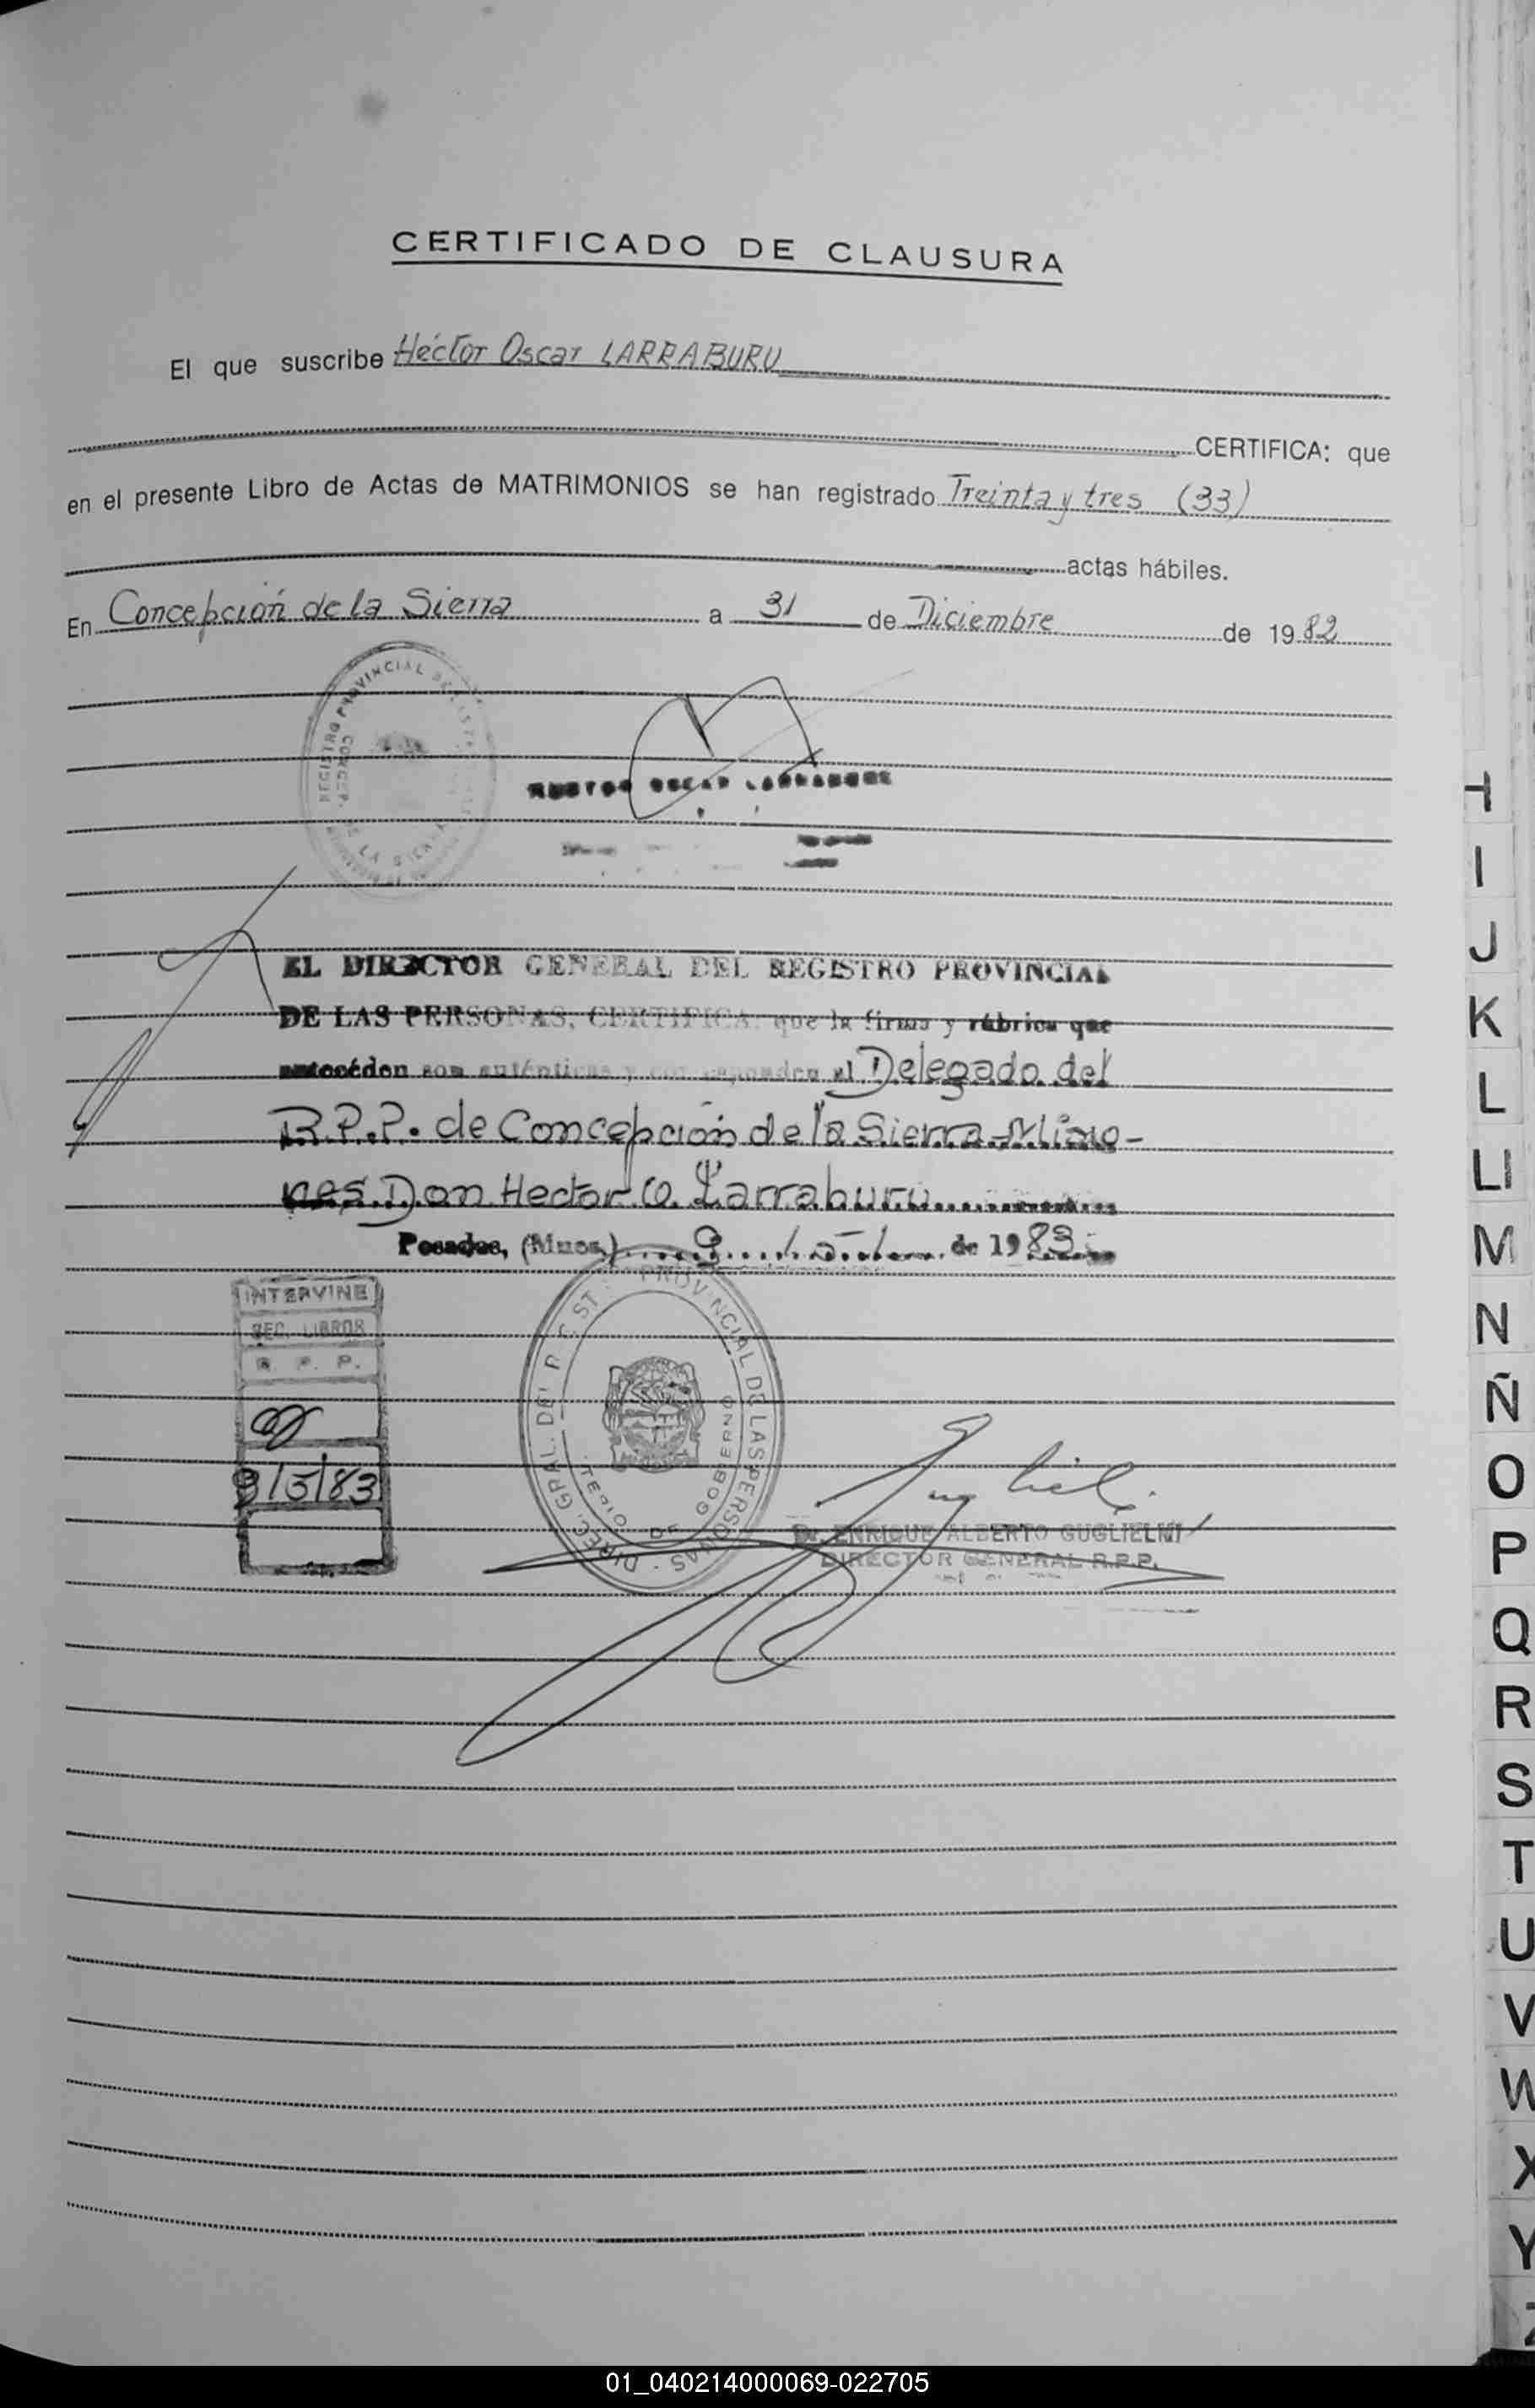 CERTIFICADO DE CLAUSURA
El que suscribe Héctor Oscar LARRABURU
CERTIFICA: que
en el presente Libro de Actas de MATRIMONIOS se han registrado Treinta y tres (33)
actas hábiles.
En Concepción de la Sierra a 31 de Diciembre de 1982
REGISTRO PROVINCIAL DE LAS
CONCEP. DE LA SIERRA
OSCAR LARRABURU
EL DIRECTOR GENERAL DEL REGISTRO PROVINCIAL
DE LAS PERSONAS, CERTIFICA: que la firma y rúbrica que
anteceden son auténticas y corresponden al Delegado del
R.P.P. de Concepción de la Sierra-Misio-
nes. Don Hector O. Larraburu
Posadas, (Mnes.) 9 de 1983
INTERVINE
SEC. LIBROS
R. P. P.
9/5/83
DIREC. GRAL. DEL PROVINCIAL DE LAS PERSONAS
DE GOBIERNO
Dr. ENRIQUE ALBERTO GUGLIELMI
DIRECTOR GENERAL R.P.P.
H
I
J
K
L
Ll
M
N
Ñ
O
P
Q
R
S
T
U
V
W
X
Y
Z
01_040214000069-022705